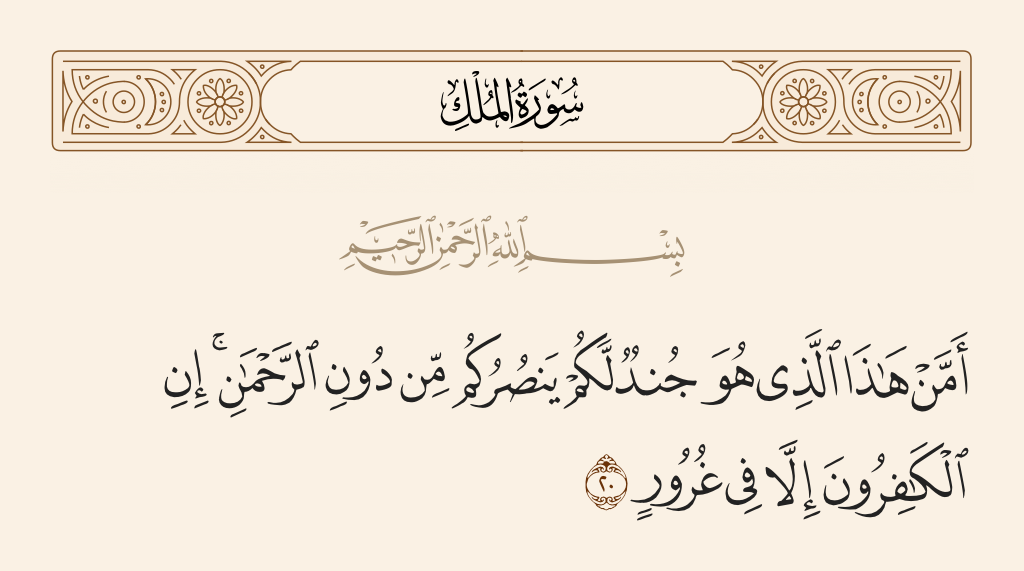 سُورَةُ الْمُلْكِ
بِسْمِ ٱللَّهِ ٱلرَّحْمَٰنِ ٱلرَّحِيمِ
أَمَّنْ هَٰذَا ٱلَّذِى هُوَ جُندٌ لَّكُمْ يَنصُرُكُم مِّن دُونِ ٱلرَّحْمَٰنِ ۚ إِنِ
ٱلْكَٰفِرُونَ إِلَّا فِى غُرُورٍ ٢٠